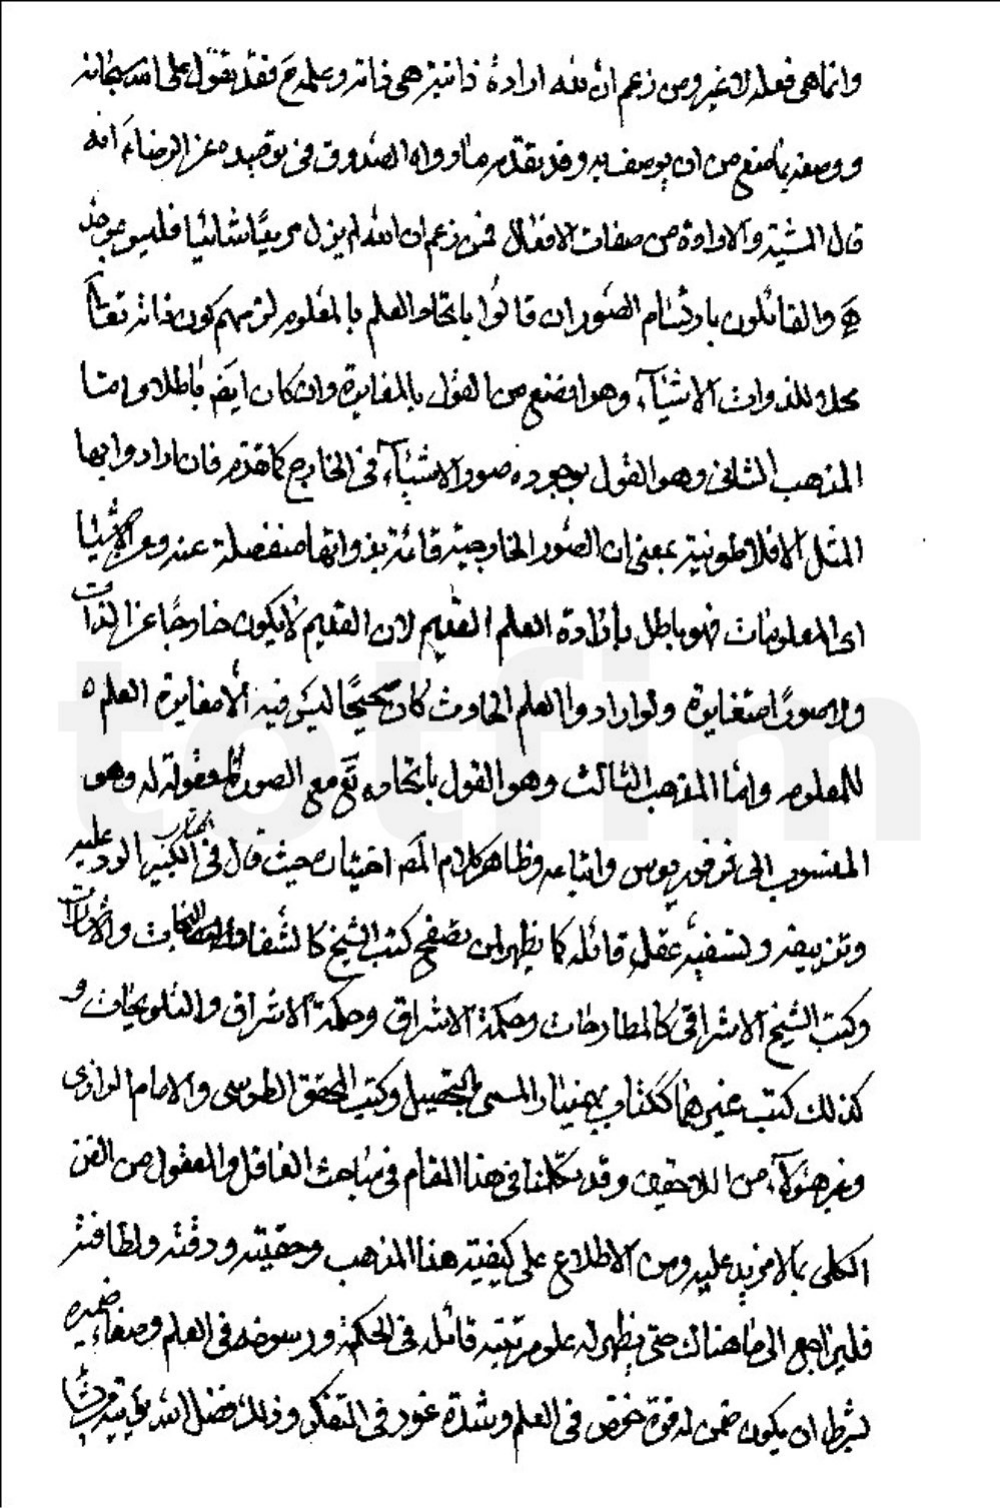 وانما هى فعله لا غير ومن زعم ان لله ارادة ذاتية هى ذاته وعلمه ح فقد تقول على الله سبحانه
ووصفه بما منع من ان يوصف به وقد تقدم ما رواه الصدوق فى توحيده عن الرضاء انه
قال المشية والارادة من صفات الافعال فمن زعم ان الله لم يزل مريدًا شائيا فليس بموحد
والقائلون بارتسام الصور ان قالوا باتحاد العلم بالمعلوم لزمهم كون ذاته تعا
محلا للذوات الاشياء وهو افضع من القول بالمغايرة وان كان ايضا باطلا واما
المذهب الثانى وهو القول بوجود صور الاشياء فى الخارج كما تقدم فان ارادوا بها
المثل الافلاطونية بمعنى ان الصور الخارجية قائمة بذواتها منفصلة عنه وعن الاشيا
اى المعلومات فهو باطل بارادة العلم القديم لان القديم لا يكون خارجا عن الذات
ولا صورًا متغايرة ولو ارادوا العلم الحادث كان صحيحًا ليس فيه الا مغايرة العلم
للمعلوم واما المذهب الثالث وهو القول باتحاده تع مع الصور المعقولة له وهو
المنسوب الى فرفوريوس واتباعه وظاهر كلام المص اختياره حيث قال فى الكتاب الكبير الرد عليه
وتزييفه وتسفيه عقل قائله كما يظهر لمن تصفح كتب الشيخ كالشفا والنجاة والاشارات
وكتب الشيخ الاشراقى كالمطارحات وحكمة الاشراق وحكمة الاشراق والتلويحات و
كذلك كتب غيرهما ككتاب بهمنيار المسمى بالتحصيل وكتب المحقق الطوسى والامام الرازى
وغير هؤلاء من اللاحقين وقد تكلمنا فى هذا المقام فى مباحث العاقل والمعقول من الفن
الكلى بما لا مزيد عليه ومن الاطلاع على كيفية هذا المذهب وحقيته ودقته ولطافته
فليراجع الى ما هناك حتى يظهر له علو مرتبة قائله فى الحكمة ورسوخه فى العلم وصفاء ضميره
بشرط ان يكون ممن له قوة خوض فى العلم وشدة غور فى التفكر وذلك فضل الله يؤتيه من يشا
totfim